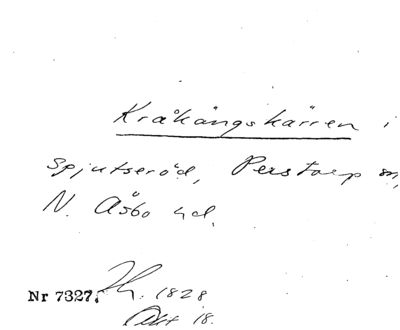 Kråkängskärren i
Spjutseröd, Perstorp sn,
N. Åsbo hd.
Nr 7327. Th. 1828
Akt 18.